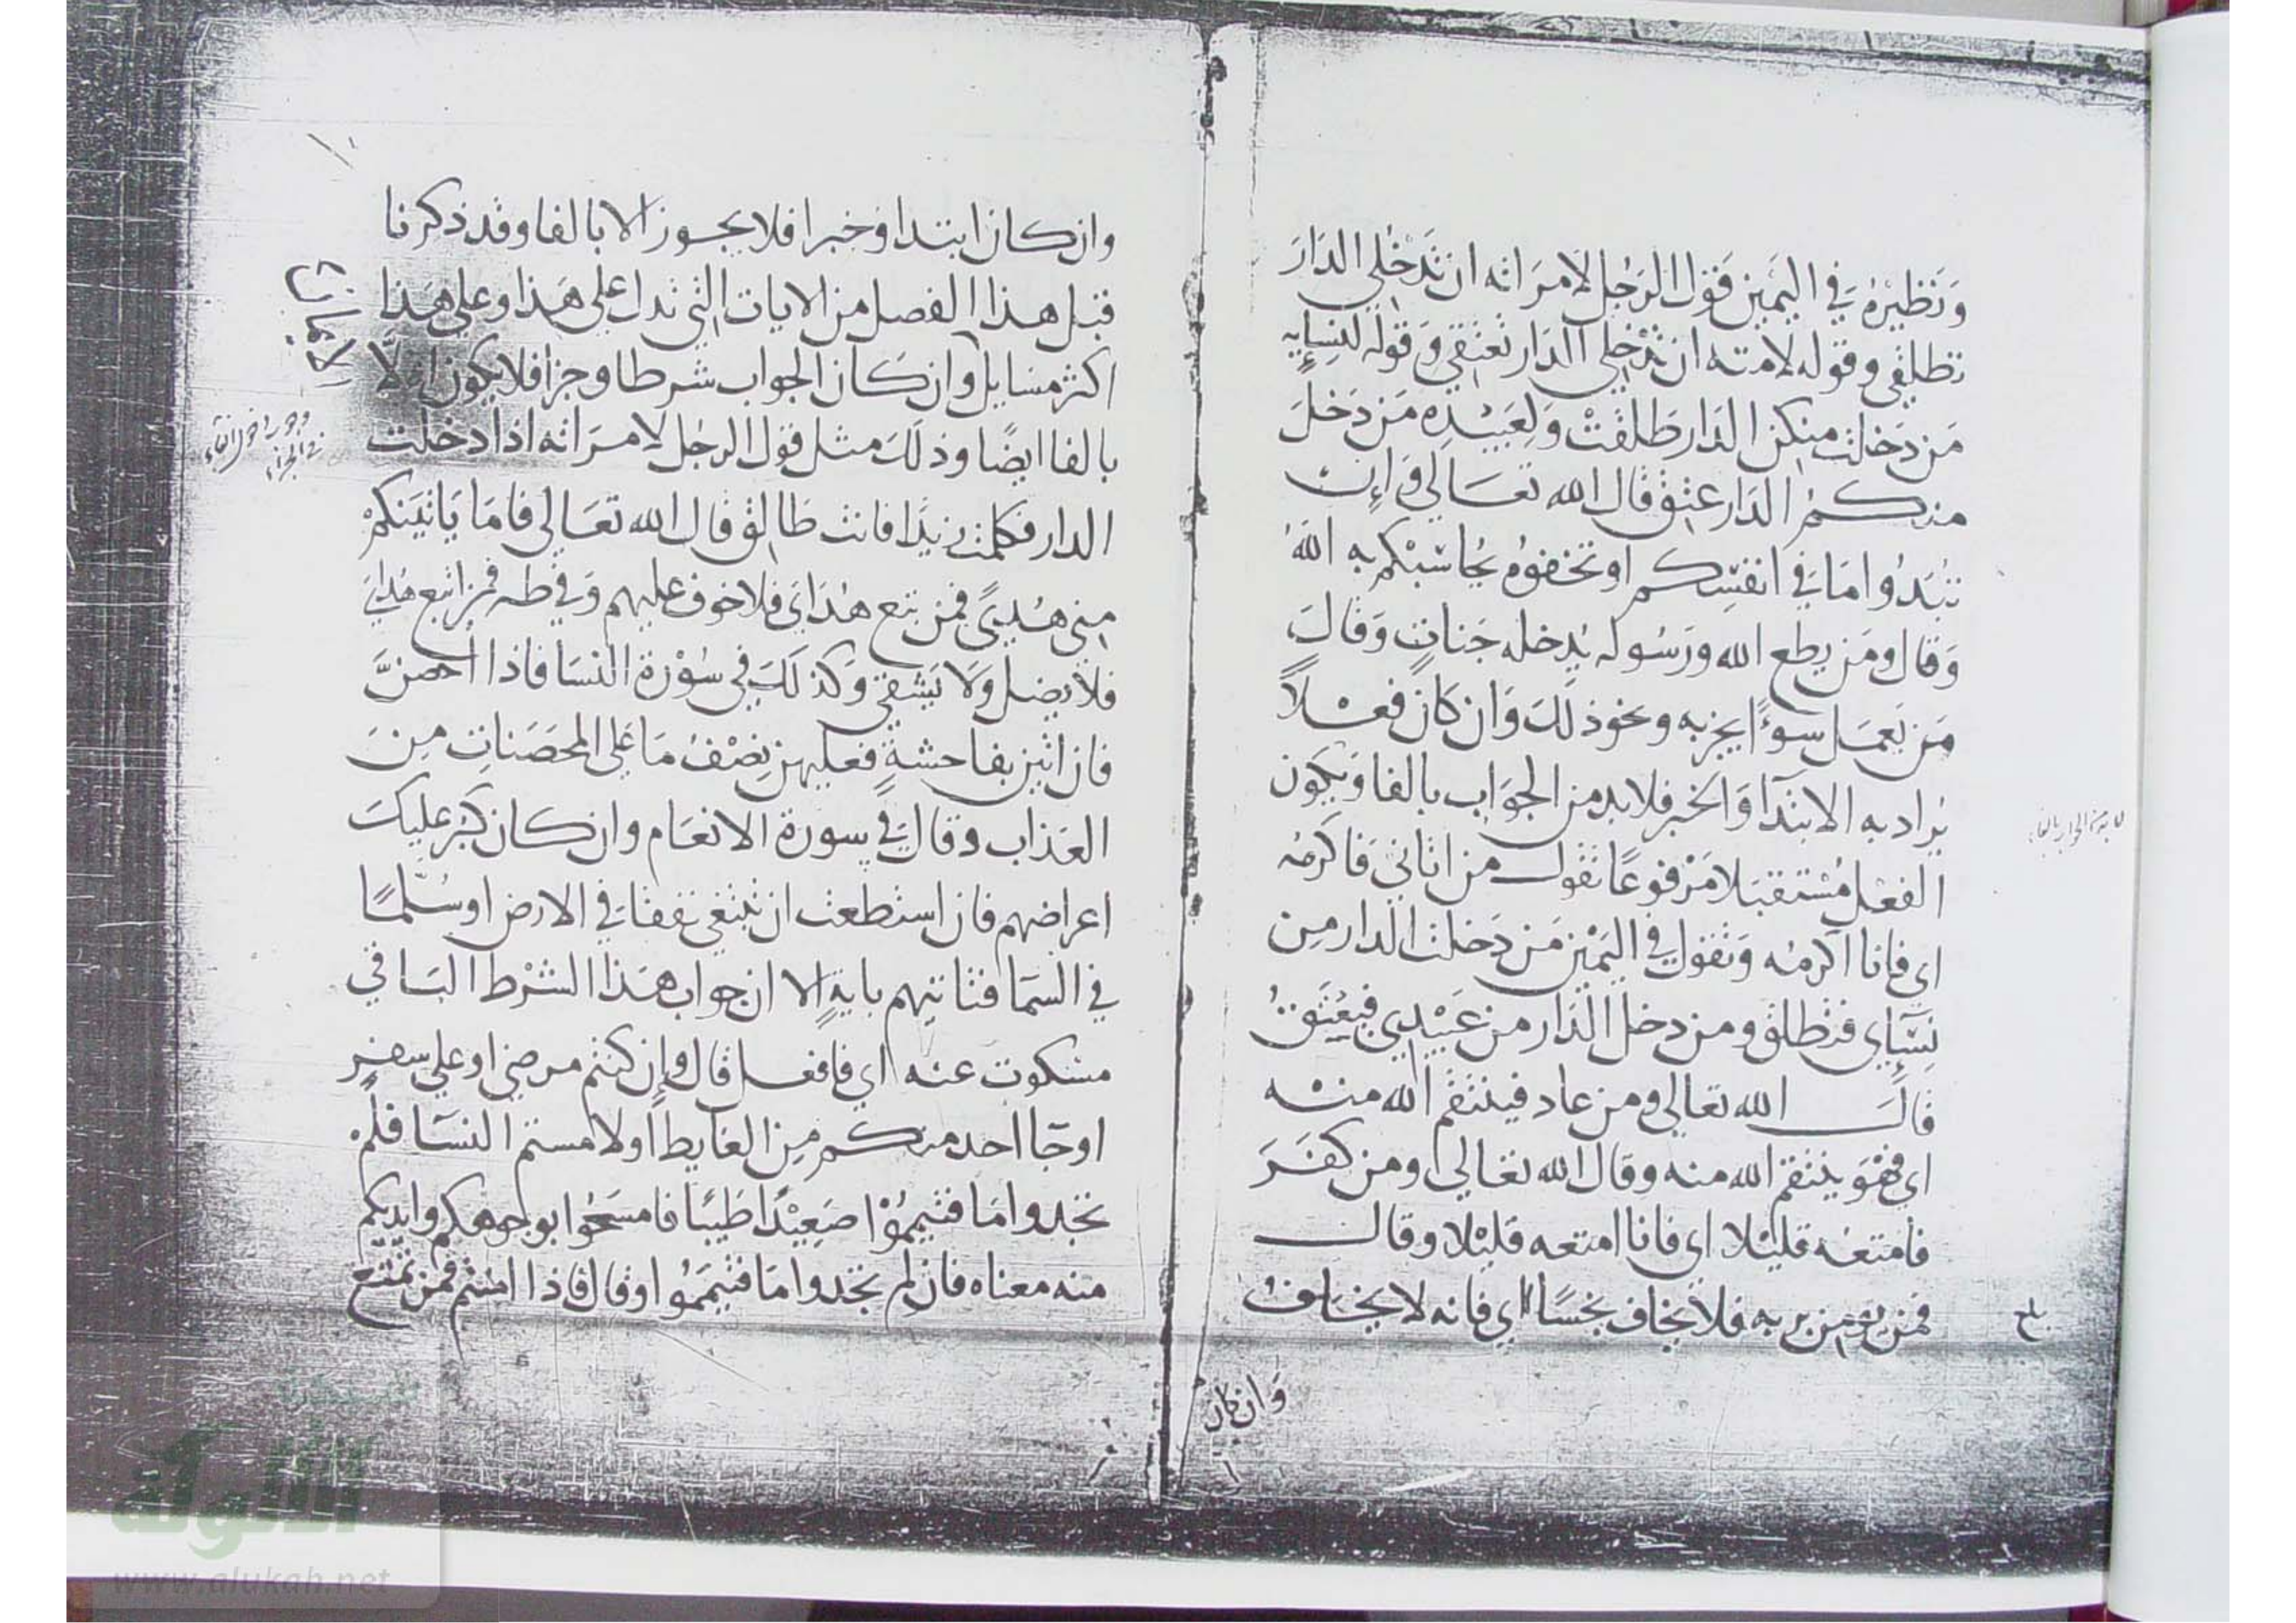 وَنَظيْرُهُ في اليَمين قول الرَجُل لامرَاته ان تدَخُلي الدَارَ
تطلقي وقوله لامته ان تدْخلي الدَار تعتقي وَقوله لنِسَايه
مَن دَخلت منكن الدَار طلقتْ وَلعَبيْده مَن دَخلَ
منكمُ الدَار عتق قال الله تعَالي وَإن
تبُدُوا مَا في انفسِكم او تخفوهُ يُحَاسبْكم به اللهُ
وَقال وَمَن يطع الله وَرَسُوله يدخله جَناتٍ وَقالَ
مَن يَعمَل سوءًا يجز به ونحوذلكَ وَان كان فعْلاً
يُراد به الابتدَآ وَالخبر فلابد من الجوَاب بالفا وَيكون
الفعْل مُسْتقبَلا مَرْفوعًا تقول من اتاني فاكرمُه
اي فانا اكرمُه وَتقول في اليَمْين مَن دَخلت الدار مِن
نِسَآي فتطلق ومن دخل الدَار من عَبيْدي فيُعْتقُ
قالَ الله تعالي ومن عاد فينتقم الله منه
اي فهُوَ ينتقم الله منه وقال الله تعَالي ومن كفَرَ
فامتعُه قليْلا اي فانا امتعه قليْلا وقال
فمن يؤمن بربه فلا يخاف بخسًا اي فانه لا يخاف
لابد من الجواب بالفاء
بلغ
وَان كان
وان كان ابتدا وخبرا فلا يجوز الا بالفا وقد ذكرنا
قبل هذا الفصل من الايات التي تدل علي هَذا وعلي هَذا
اكثر مسَايل وان كَان الجواب شرطا وجزا فلا يكون
بالفا ايضًا وذلكَ مثل قول الرجُل لامرَاته اذا دخلت
الدار فكلمت زيدًا فانت طَالق قال الله تعَالي فامَا يَاتينكمْ
مني هُديً فمن تبع هُدَايَ فلا خوف عليهم وَفي طه فمن اتبع هُدايَ
فلا يضل وَلا يَشقي وَكذلكَ في سُوْرة النسَا فاذا احصنَّ
فان اتين بفاحشةٍ فعليهن نِصْفُ مَا عَلي المحصَنَاتِ مِنَ
العَذاب وَقالَ في سورة الانعَام وان كان كبُر عليكَ
اعراضهم فان استطعت ان تبتغي نفقا في الارض او سُلّمًا
في السَمَا فتاتيهم بايةٍ الا ان جواب هَذا الشرْط الثاني
مسكوت عنه اي فافعل قال وإن كنتم مرضي او علي سفرٍ
او جَا احد منكم مِن الغايط او لامستم النسَا فلمْ
تجدوا مَا فتيممُوْا صَعِيْدًا طَيبًا فامسَحُوا بوجوهكم وايديكم
منه معناه فان لم تجدوا مَا فتيمَمُوا وقال فاذا امنتم فمن تمتع
في الجزاء
شبكة
الألوكة
www.alukah.net